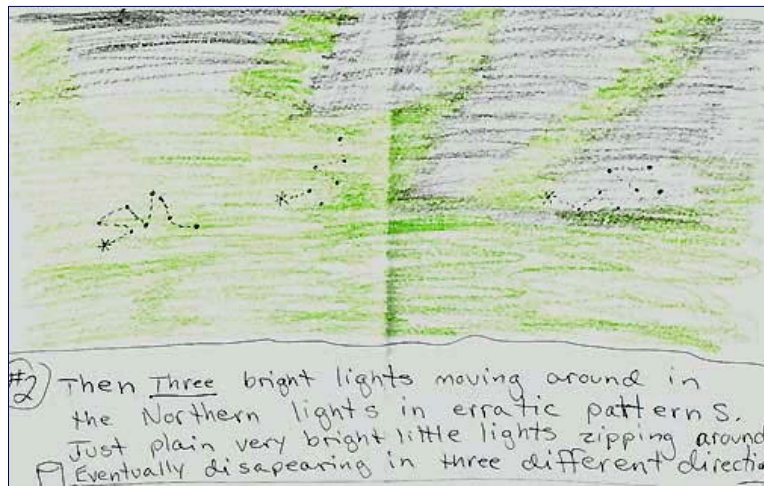 #2 Then Three bright lights moving around in
the Northern lights in erratic patterns.
Just plain very bright little lights zipping around
Eventually disapearing in three different directio